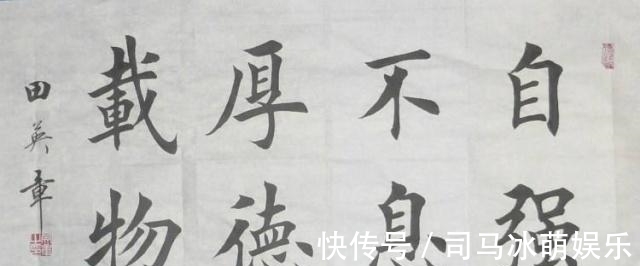 自强
不息
厚德
載物
田英章
快传号 / 司马冰萌娱乐